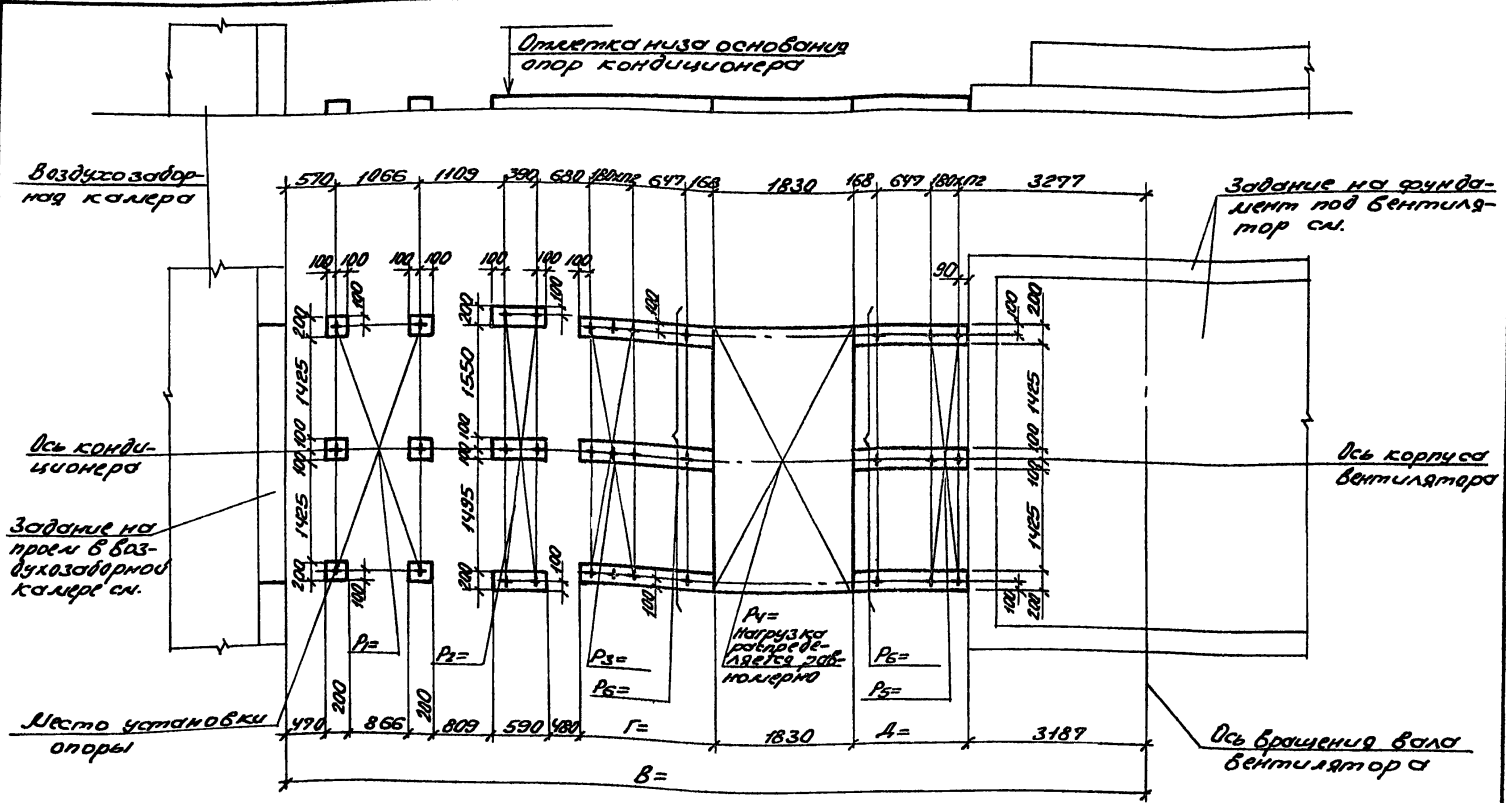 Отметка низа основания
опор кондиционера
Воздухозабор-
ная камера
570 1066 1109 390 680 180хп2 647 168 1830 168 647 180хп2 3277
Задание на фунда-
мент под вентиля-
тор см.
100 100 100 100 100 100 100
90
100 100 100 100 200
200 200
1425 1550 1425
Ось конди-
ционера
100 100 100
100 100 100
Ось корпуса
вентилятора
1425 1495 1425
Задание на
проем в воз-
духозаборной
камере см.
200 200 200
100 100 100 100
P1=
P2=
P3=
P6=
P4=
Нагрузка
распреде-
ляется рав-
номерно
P6=
P5=
Место установки
опоры
470 200 866 200 809 590 480 Г= 1830 Д= 3187
Ось вращения вала
вентилятора
В=